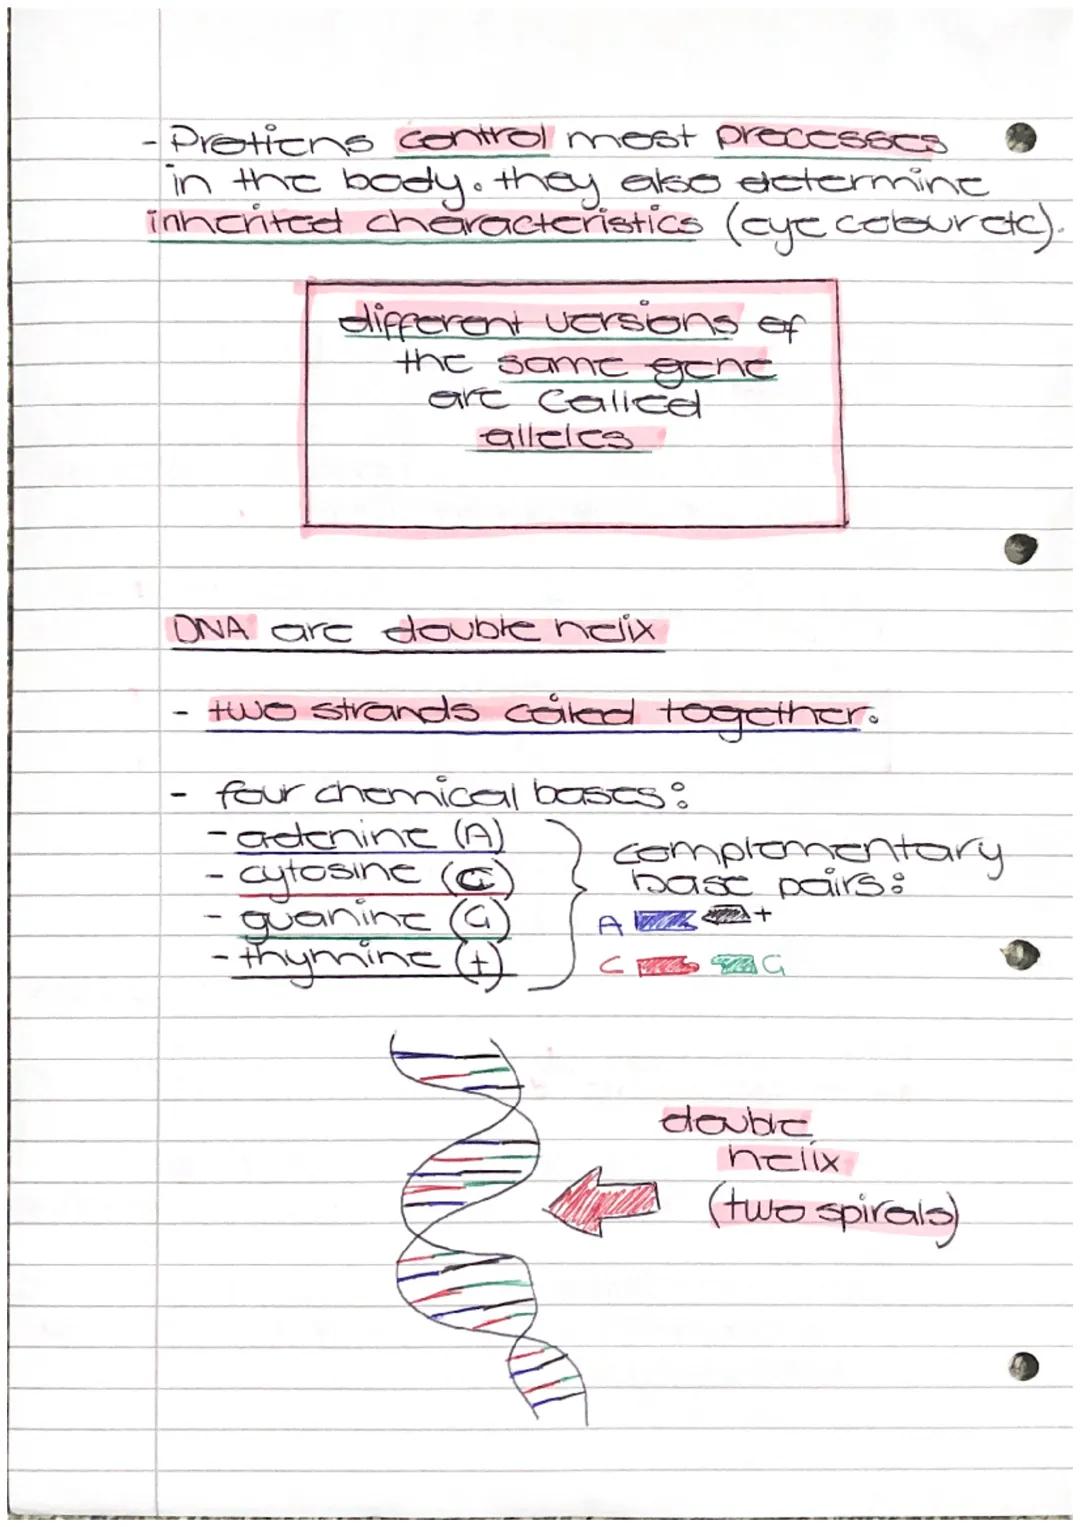 - Protiens control most processes
in the body. they also determine
inherited characteristics (eye colour etc).
different versions of
the same gene
are called
alleles
DNA are double helix
- two strands coiled together.
- four chemical bases:
- adenine (A)
- cytosine (C)
- guanine (G)
- thymine (t)
complementary
base pairs:
A t
C G
double
helix
(two spirals)